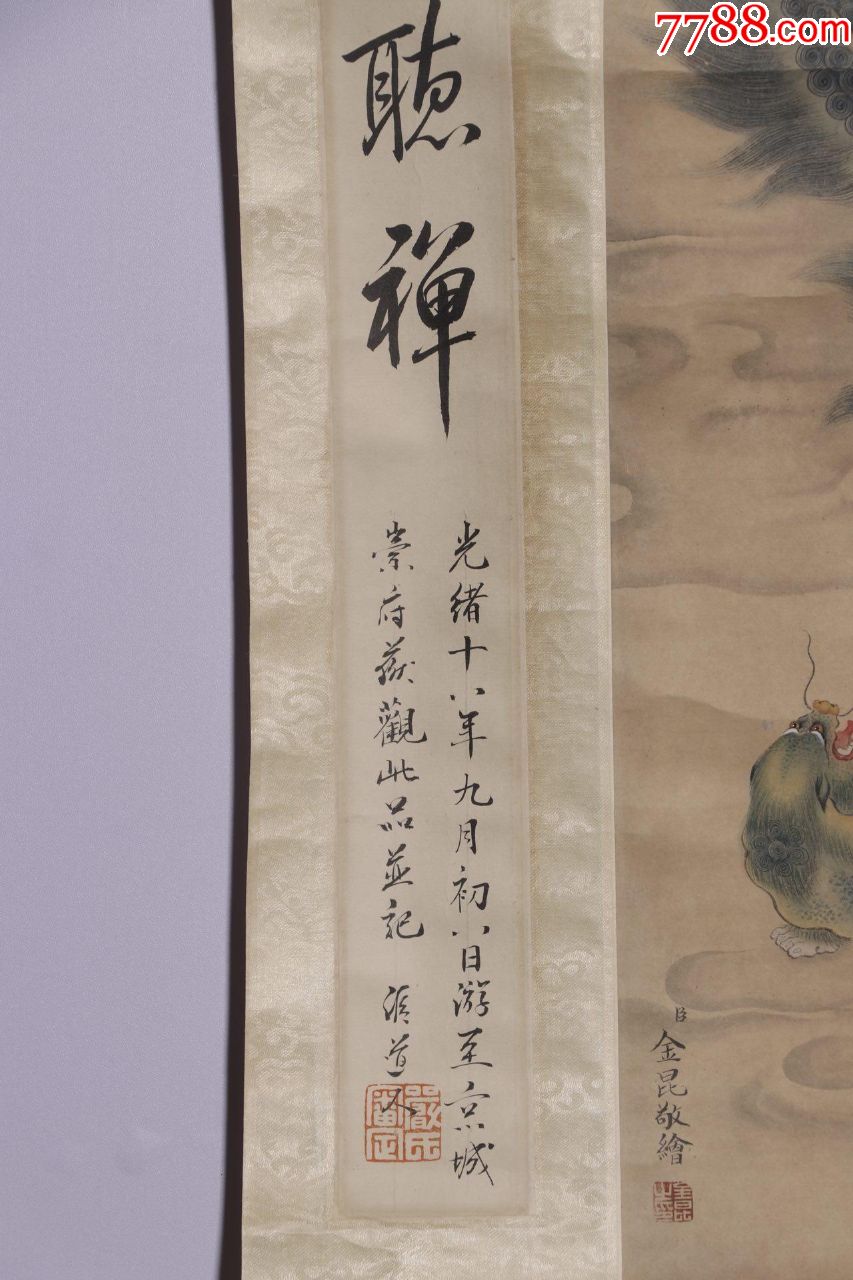 7788.com
聽
禪
光緒十八年九月初八日游至京城
崇府獲觀此品並記
道人
嚴氏
臣
金昆敬繪